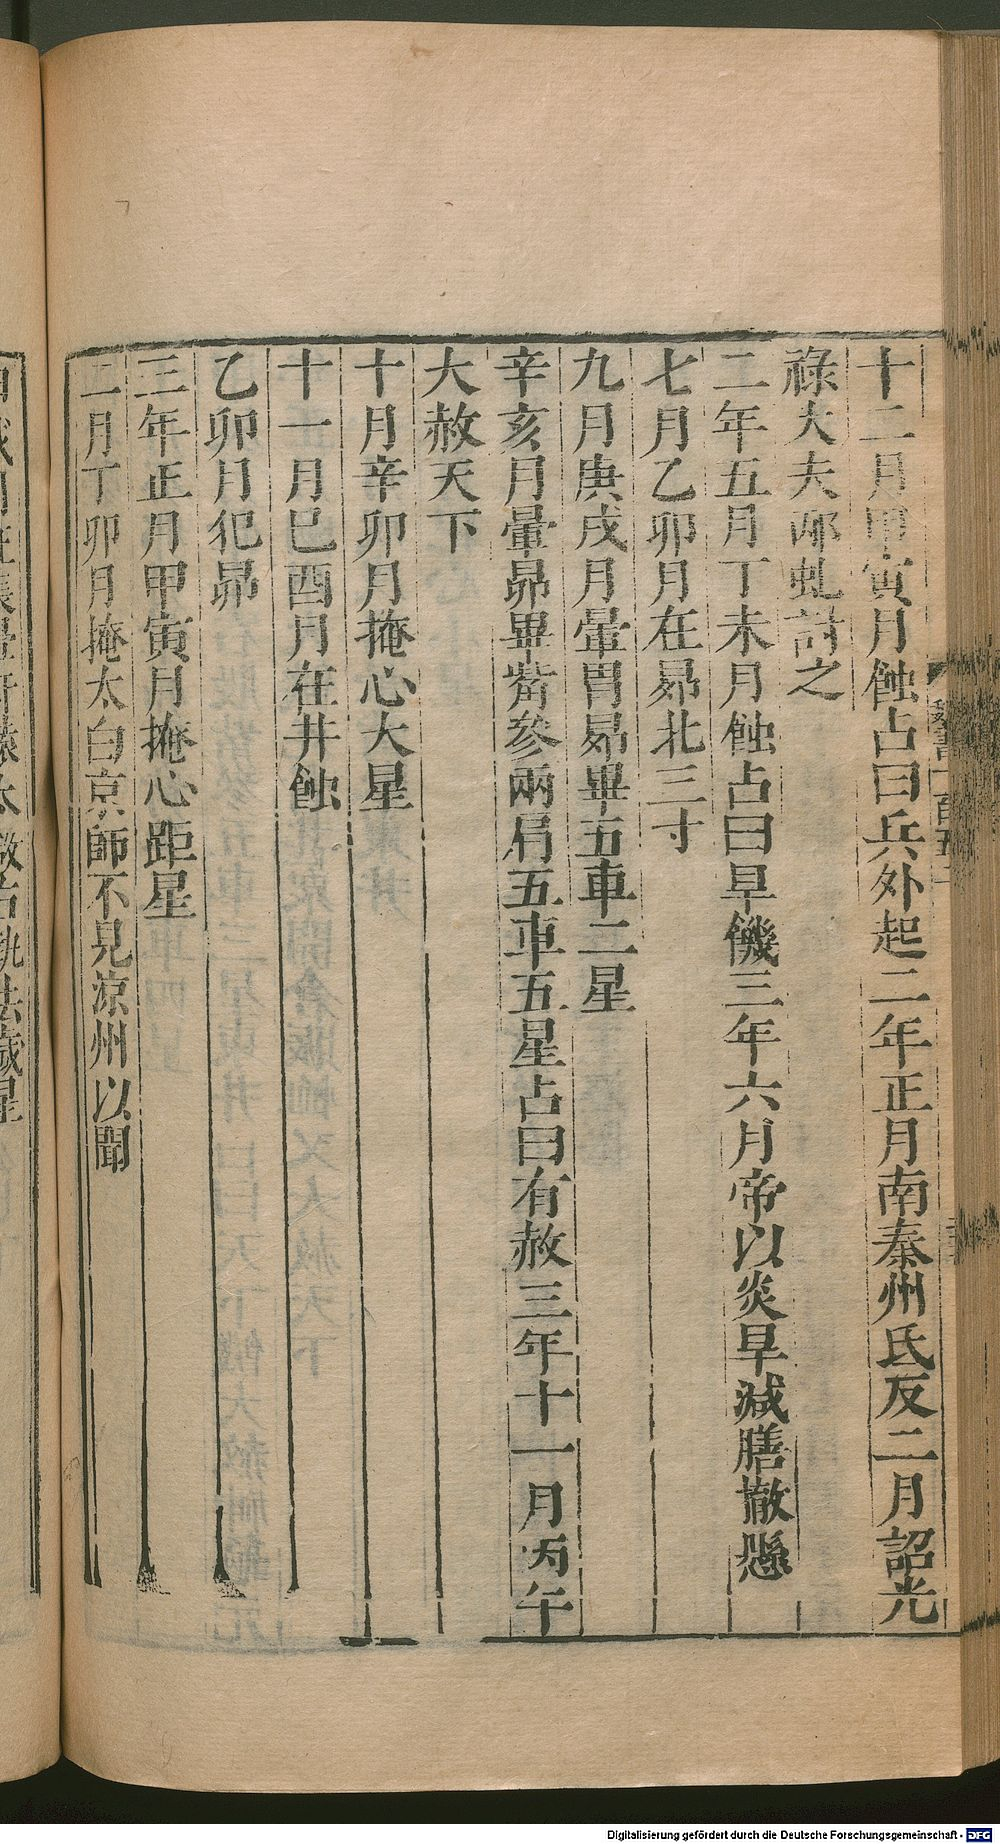 十二月甲寅月蝕占曰兵外起二年正月南秦州氐反二月詔光
祿大夫邴虬討之
二年五月丁未月蝕占曰旱饑三年六月帝以炎旱減膳撤懸
七月乙卯月在昴北三寸
九月庚戌月暈胃昴畢五車二星
辛亥月暈昴畢觜參兩肩五車五星占曰有赦三年十一月丙午
大赦天下
十月辛卯月掩心大星
十一月巳酉月在井蝕
乙卯月犯昴
三年正月甲寅月掩心距星
二月丁卯月掩太白京師不見涼州以聞
魏書一百五
Digitalisierung gefördert durch die Deutsche Forschungsgemeinschaft - DFG